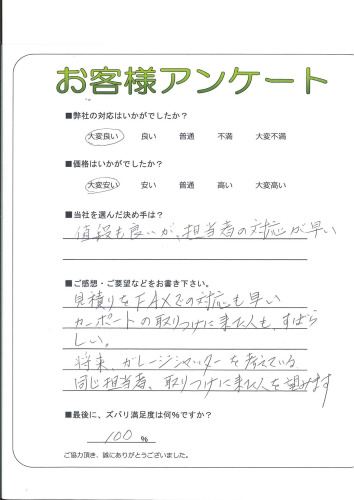 お客様アンケート
■弊社の対応はいかがでしたか?
大変良い 良い 普通 不満 大変不満
■価格はいかがでしたか?
大変安い 安い 普通 高い 大変高い
■当社を選んだ決め手は?
値段も良いが、担当者の対応が早い
■ご感想・ご要望などをお書き下さい。
見積りをFAXでの対応も早い
カーポートの取りつけに来た人も、すばら
しい。
将来、ガレージシャッターを考えている
同じ担当者、取りつけに来た人を望みます
■最後に、ズバリ満足度は何%ですか?
100 %
ご協力頂き、誠にありがとうございました。